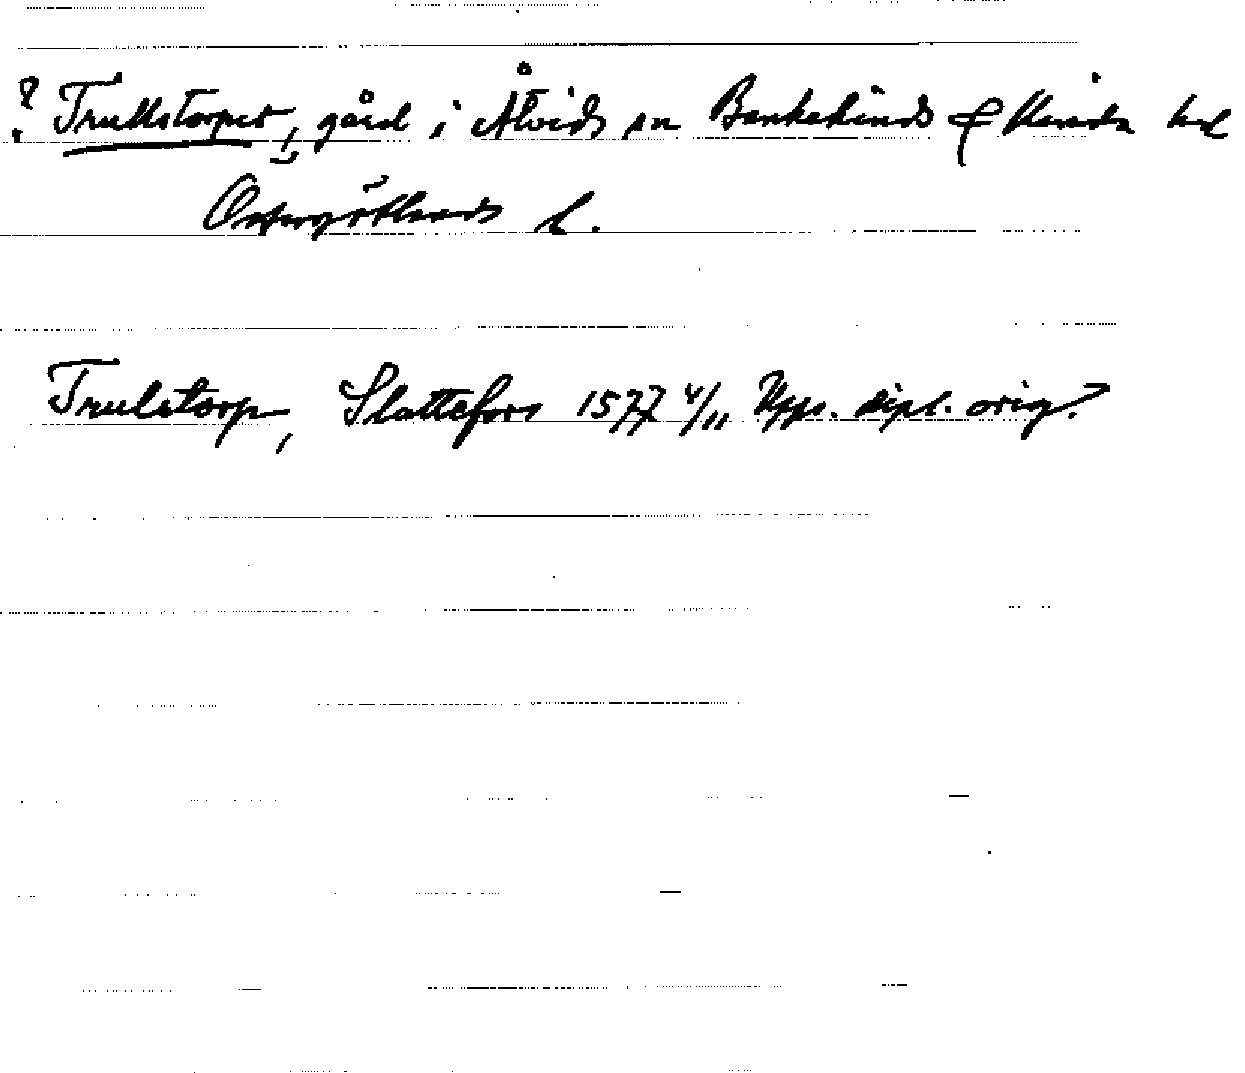 ? Trullstorpet, gård i Åtvids sn Bankekinds f Kinda hd
Östergötlands l.
Trulstorp, Slattefors 1577 4/11 Upps. dipl. orig.